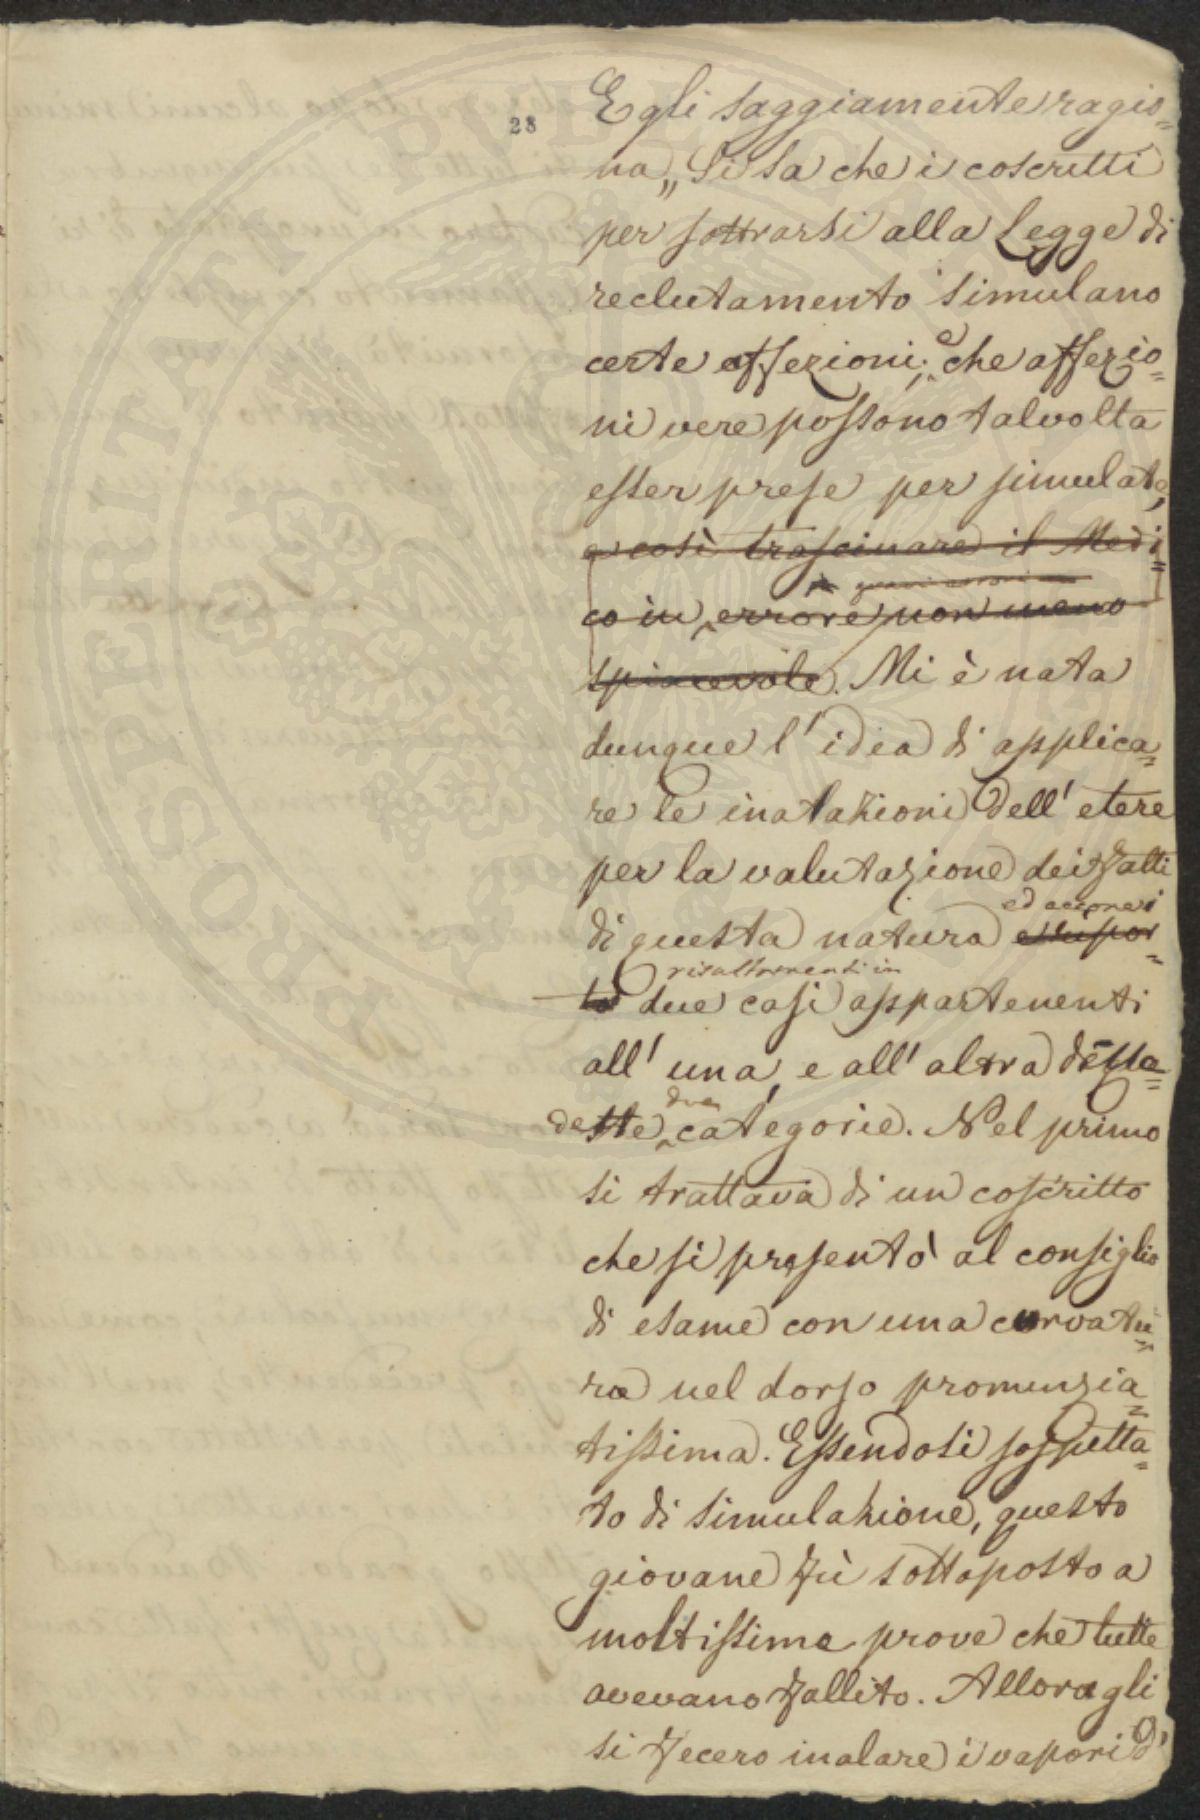 28
Egli saggiamente ragio=
na „ Si sa che i coscritti
per sottrarsi alla Legge di
reclutamento simulano
certe affezioni; e che affezio=
ni vere possono talvolta
esser prese per simulate,
e così trascinare il Medi=
co in errore non meno
spiacevole. Mi è nata
dunque l'idea di applica=
re le inalazioni dell'etere
per la valutazione dei fatti
ed accenna i
di questa natura e rispor=
risaltamenti in
to due casi appartenenti
all'una, e all'altra delle
due
dette categorie. Nel primo
si trattava di un coscritto
che si presentò al consiglio
di esame con una curvatu=
ra nel dorso pronunzia=
tissima. Essendosi sospetta=
to di simulazione, questo
giovane fù sottoposto a
moltissime prove che tutte
avevano fallito. Allora gli
si fecero inalare i vapori di
PROSPERITATI PUBLICAE